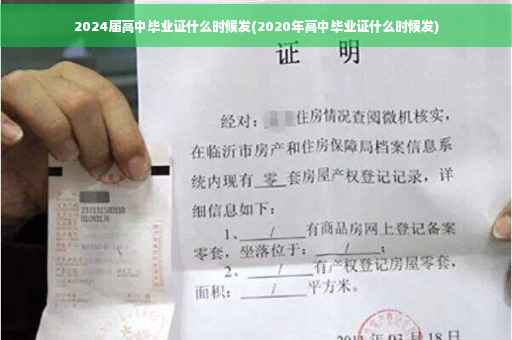 2024届高中毕业证什么时候发(2020年高中毕业证什么时候发)
证 明
经对：住房情况查阅微机核实，
在临沂市房产和住房保障局档案信息系
统内现有 零 套房屋产权登记记录，详
细信息如下：
1、 / 有商品房网上登记备案
零套，坐落位于： / ；
2、 / 有产权登记房屋零套，
面积： / 平方米。
年03月18日